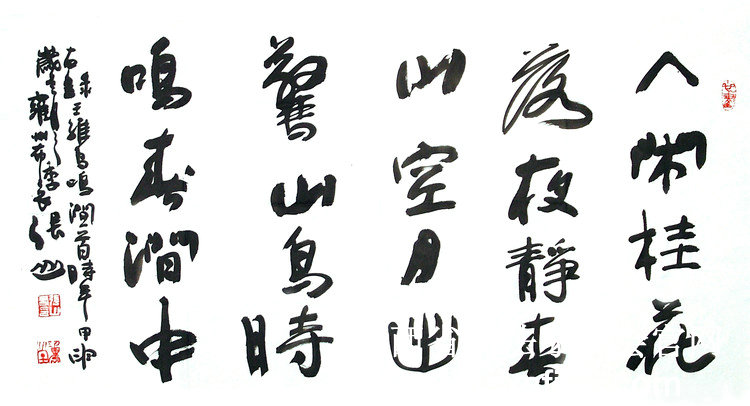 人閑桂花
落夜靜春
山空月出
驚山鳥時
鳴春澗中
錄王維鳥鳴澗首時年甲申